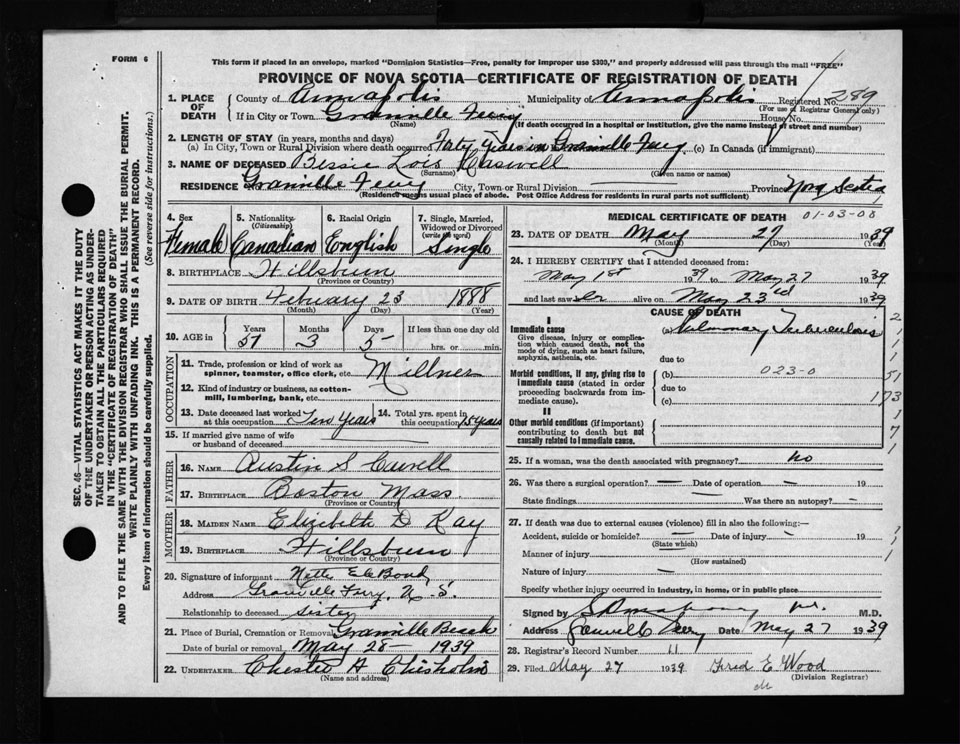 FORM 6
This form if placed in an envelope, marked "Dominion Statistics—Free, penalty for improper use $300," and properly addressed will pass through the mail "FREE"
PROVINCE OF NOVA SCOTIA—CERTIFICATE OF REGISTRATION OF DEATH
1. PLACE OF DEATH
County of Annapolis Municipality of Annapolis Registered No. 289
(For use of Registrar General only)
If in City or Town Granville Ferry House No.
(Name) (If death occurred in a hospital or institution, give the name instead of street and number)
2. LENGTH OF STAY (in years, months and days)
(a) In City, Town or Rural Division where death occurred Forty Years in Granville Ferry (c) In Canada (if immigrant)
3. NAME OF DECEASED Bessie Lois Caswell
(Surname) (Given name or names)
RESIDENCE Granville Ferry City, Town or Rural Division — Province Nova Scotia
(Residence means usual place of abode. Post Office Address for residents in rural parts not sufficient)
4. Sex Female
5. Nationality (Citizenship) Canadian
6. Racial Origin English
7. Single, Married, Widowed or Divorced (write the word) Single
8. BIRTHPLACE Hillsburn
(Province or Country)
9. DATE OF BIRTH February 23 1888
(Month) (Day) (Year)
10. AGE in Years Months Days If less than one day old
51 3 5 hrs. or min.
OCCUPATION
11. Trade, profession or kind of work as spinner, teamster, office clerk, etc. Millner
12. Kind of industry or business, as cotton-mill, lumbering, bank, etc.
13. Date deceased last worked at this occupation Ten Years
14. Total yrs. spent in this occupation 15 years
15. If married give name of wife or husband of deceased
FATHER
16. NAME Austin S
17. BIRTHPLACE Boston Mass.
(Province or Country)
MOTHER
18. MAIDEN NAME Elizabeth D Kay
19. BIRTHPLACE Hillsburn
(Province or Country)
20. Signature of informant
Address Granville Ferry, N. S.
Relationship to deceased Sister
21. Place of Burial, Cremation or Removal Granville Beach
Date of burial or removal May 28 - 1939
22. UNDERTAKER Chester A Chisholm
(Name and address)
MEDICAL CERTIFICATE OF DEATH 01-03-08
23. DATE OF DEATH May 27 1939
(Month) (Day) (Year)
24. I HEREBY CERTIFY that I attended deceased from:
May 1st 1939 to May 27 1939
and last saw her alive on May 23rd 1939
CAUSE OF DEATH
I
Immediate cause (a) Pulmonary Tuberculosis
Give disease, injury or complication which caused death, not the mode of dying, such as heart failure, asphyxia, asthenia, etc.
due to
Morbid conditions, if any, giving rise to immediate cause (stated in order proceeding backwards from immediate cause).
(b) 023-0
due to
(c) 173
II
Other morbid conditions (if important) contributing to death but not causally related to immediate cause.
2
1
1
1
51
1
7
1
25. If a woman, was the death associated with pregnancy? no
26. Was there a surgical operation? — Date of operation — 19
State findings Was there an autopsy? —
27. If death was due to external causes (violence) fill in also the following:—
Accident, suicide or homicide? — Date of injury — 19
(State which)
Manner of injury
(How sustained)
Nature of injury —
Specify whether injury occurred in industry, in home, or in public place
Signed by M.D.
Address Ferry Date May 27 1939
28. Registrar's Record Number 11
29. Filed May 27 1939 Fred E Wood
(Division Registrar)
SEC. 46—VITAL STATISTICS ACT MAKES IT THE DUTY
OF THE UNDERTAKER OR PERSON ACTING AS UNDER-
TAKER TO OBTAIN ALL THE PARTICULARS REQUIRED
IN THE "CERTIFICATE OF REGISTRATION OF DEATH"
AND TO FILE THE SAME WITH THE DIVISION REGISTRAR WHO SHALL ISSUE THE BURIAL PERMIT.
WRITE PLAINLY WITH UNFADING INK. THIS IS A PERMANENT RECORD.
Every item of information should be carefully supplied. (See reverse side for instructions.)